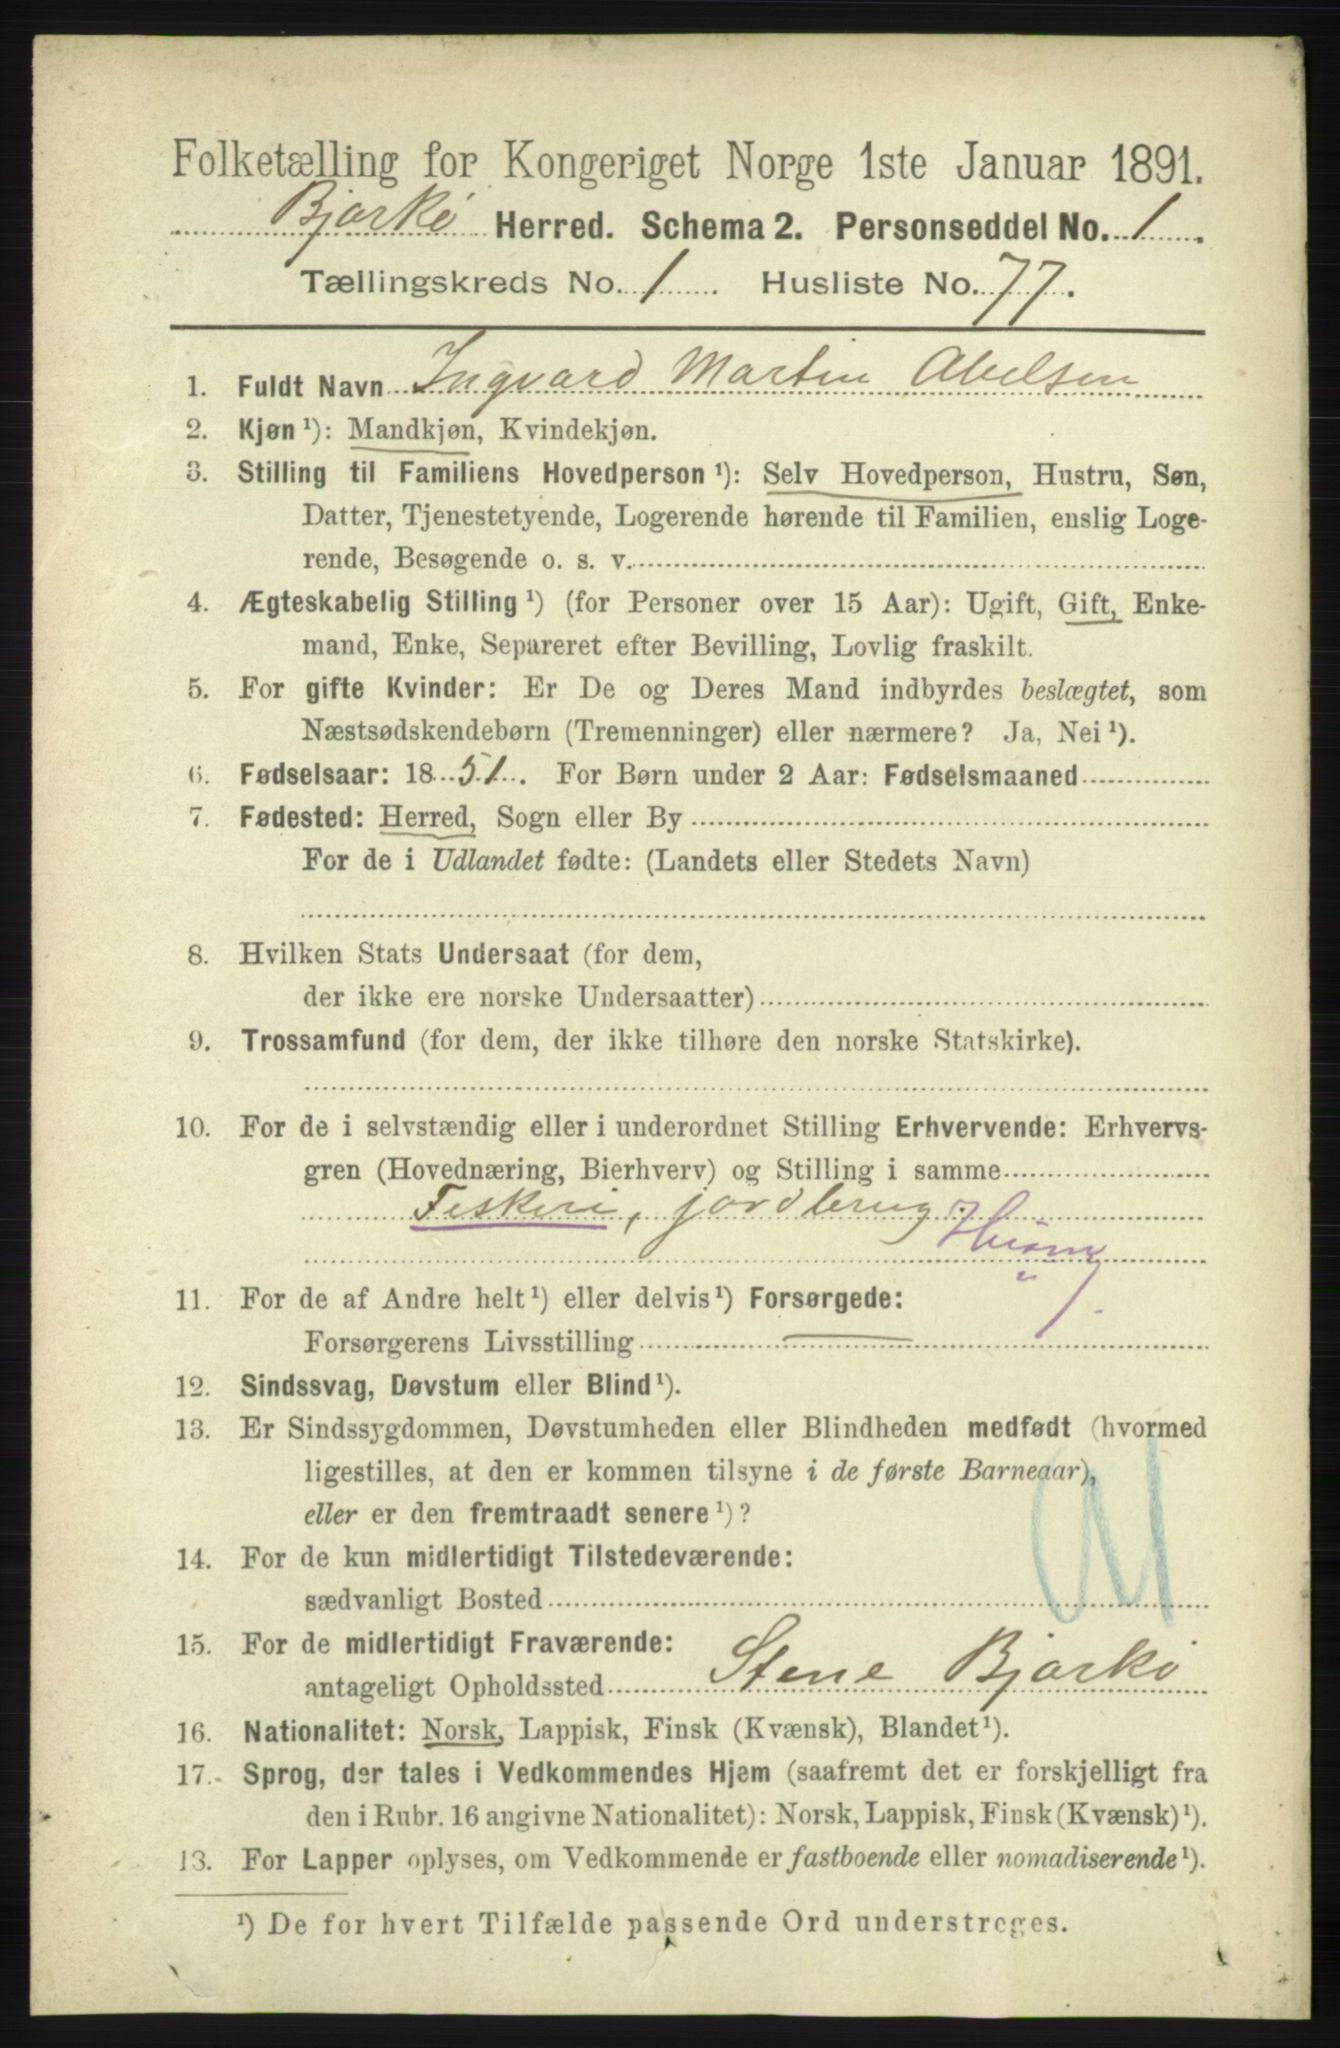 Folketælling for Kongeriget Norge 1ste Januar 1891.
Bjarkö Herred. Schema 2. Personseddel No. 1.
Tællingskreds No. 1. Husliste No. 77.
1. Fuldt Navn Ingvard Martin Abelsen
2. Kjøn ¹): Mandkjøn, Kvindekjøn.
3. Stilling til Familiens Hovedperson ¹): Selv Hovedperson, Hustru, Søn,
Datter, Tjenestetyende, Logerende hørende til Familien, enslig Loge-
rende, Besøgende o. s. v.
4. Ægteskabelig Stilling ¹) (for Personer over 15 Aar): Ugift, Gift, Enke-
mand, Enke, Separeret efter Bevilling, Lovlig fraskilt.
5. For gifte Kvinder: Er De og Deres Mand indbyrdes beslægtet, som
Næstsødskendebørn (Tremenninger) eller nærmere? Ja, Nei ¹).
6. Fødselsaar: 1851. For Børn under 2 Aar: Fødselsmaaned
7. Fødested: Herred, Sogn eller By
For de i Udlandet fødte: (Landets eller Stedets Navn)
8. Hvilken Stats Undersaat (for dem,
der ikke ere norske Undersaatter)
9. Trossamfund (for dem, der ikke tilhøre den norske Statskirke).
10. For de i selvstændig eller i underordnet Stilling Erhvervende: Erhvervs-
gren (Hovednæring, Bierhverv) og Stilling i samme
Fiskeri, jordbrug.
11. For de af Andre helt ¹) eller delvis ¹) Forsørgede:
Forsørgerens Livsstilling
12. Sindssvag, Døvstum eller Blind ¹).
13. Er Sindssygdommen, Døvstumheden eller Blindheden medfødt (hvormed
ligestilles, at den er kommen tilsyne i de første Barneaar),
eller er den fremtraadt senere ¹)?
14. For de kun midlertidigt Tilstedeværende:
sædvanligt Bosted
15. For de midlertidigt Fraværende:
antageligt Opholdssted Stene Bjarkö
16. Nationalitet: Norsk, Lappisk, Finsk (Kvænsk), Blandet ¹).
17. Sprog, der tales i Vedkommendes Hjem (saafremt det er forskjelligt fra
den i Rubr. 16 angivne Nationalitet): Norsk, Lappisk, Finsk (Kvænsk) ¹).
13. For Lapper oplyses, om Vedkommende er fastboende eller nomadiserende ¹).
¹) De for hvert Tilfælde passende Ord understreges.